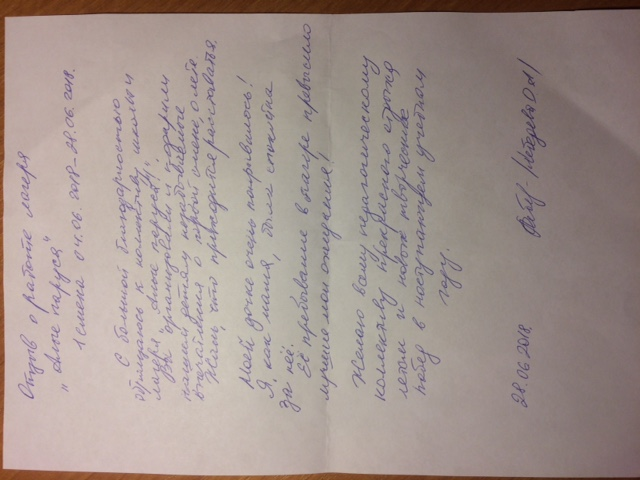 Отзыв о работе лагеря
"Алые паруса"
1 смена 04.06.2018-29.06.2018.
С большой благодарностью
обращаюсь к коллективу школы и
лагеря "Алые паруса"!
Вы организовали и подарили
нашим детям незабываемые
впечатления о первой смене, о лете.
Жаль, что приходится расставаться.
Моей дочке очень понравилось!
Я, как мама, была спокойна
за неё.
Её пребывание в лагере превысило
лучшие мои ожидания!
Желаю всему педагогическому
коллективу прекрасного отдыха
летом и новых творческих
побед в наступающем учебном
году.
28.06.2018.